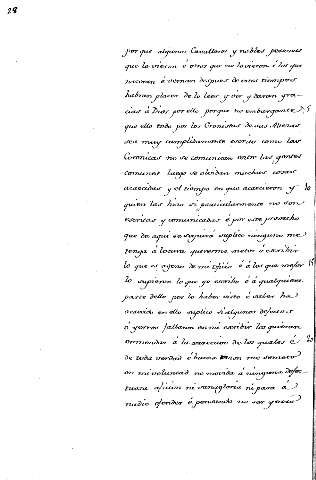 28
porque algunos Cavalleros y nobles personas
que lo vieron é otros que no lo vieron é los que
nacieron é vernan despues de estos tiempos
habran placer de lo leer y oir y daran gra-
cias á Dios por ello porque no embargante 5
que ello todo por los Cronistas de sus Altezas
sea muy cumplidamente escrito como las
Coronicas no se comunican entre las gentes
comunes luego se olvidan muchas cosas
acaecidas y el tiempo en que acaecieron y 10
quien las hizo si particularmente no son
escritas y comunicadas é por este provecho
que de aqui se seguira suplico ninguno me
tenga á locura quererme meter á escribir
lo que es ageno de mi oficio é á los que mejor 15
lo supieren lo que yo escribo é á qualquiera
parte dello por lo haber visto é saber ha
acaecido en ello suplico si algunos defectos
ó yerros fallaren en mi escribir los quieran
enmendar á la correccion de los quales é 20
de toda verdad é buena razon me someto
en mi voluntad no movida á ninguna defec-
tuosa aficion ni vanagloria ni para á
nadie ofender é pensando no ser yerro